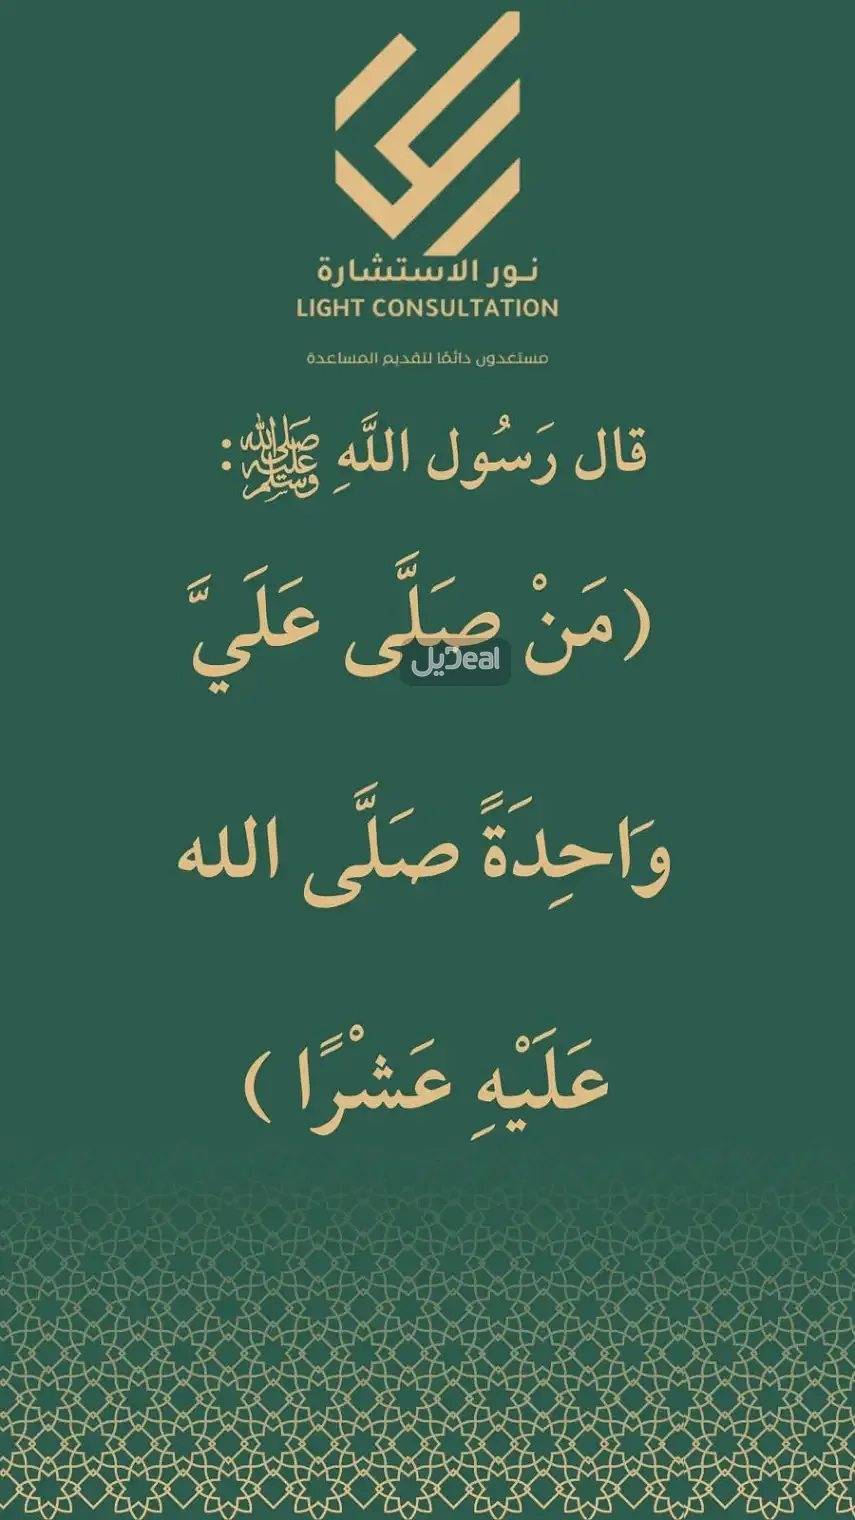 نور الاستشارة
LIGHT CONSULTATION
مستعدون دائمًا لتقديم المساعدة
قال رَسُول اللَّهِ ﷺ:
(مَنْ صَلَّى عَلَيَّ
ديل Deal
وَاحِدَةً صَلَّى الله
عَلَيْهِ عَشْرًا )